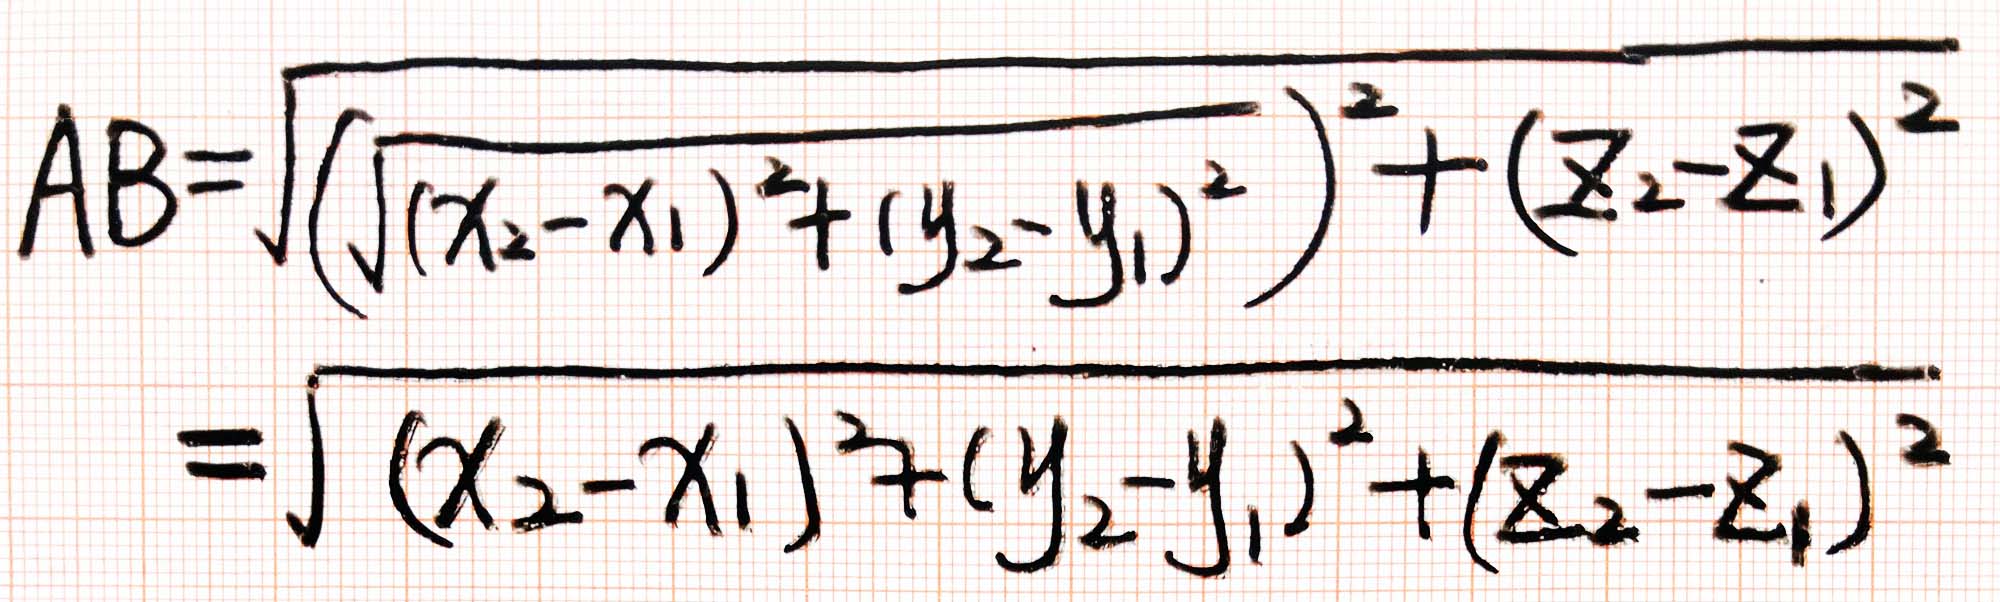 AB=√((√((x₂-x₁)²+(y₂-y₁)²))²+(z₂-z₁)²)
=√((x₂-x₁)²+(y₂-y₁)²+(z₂-z₁)²)